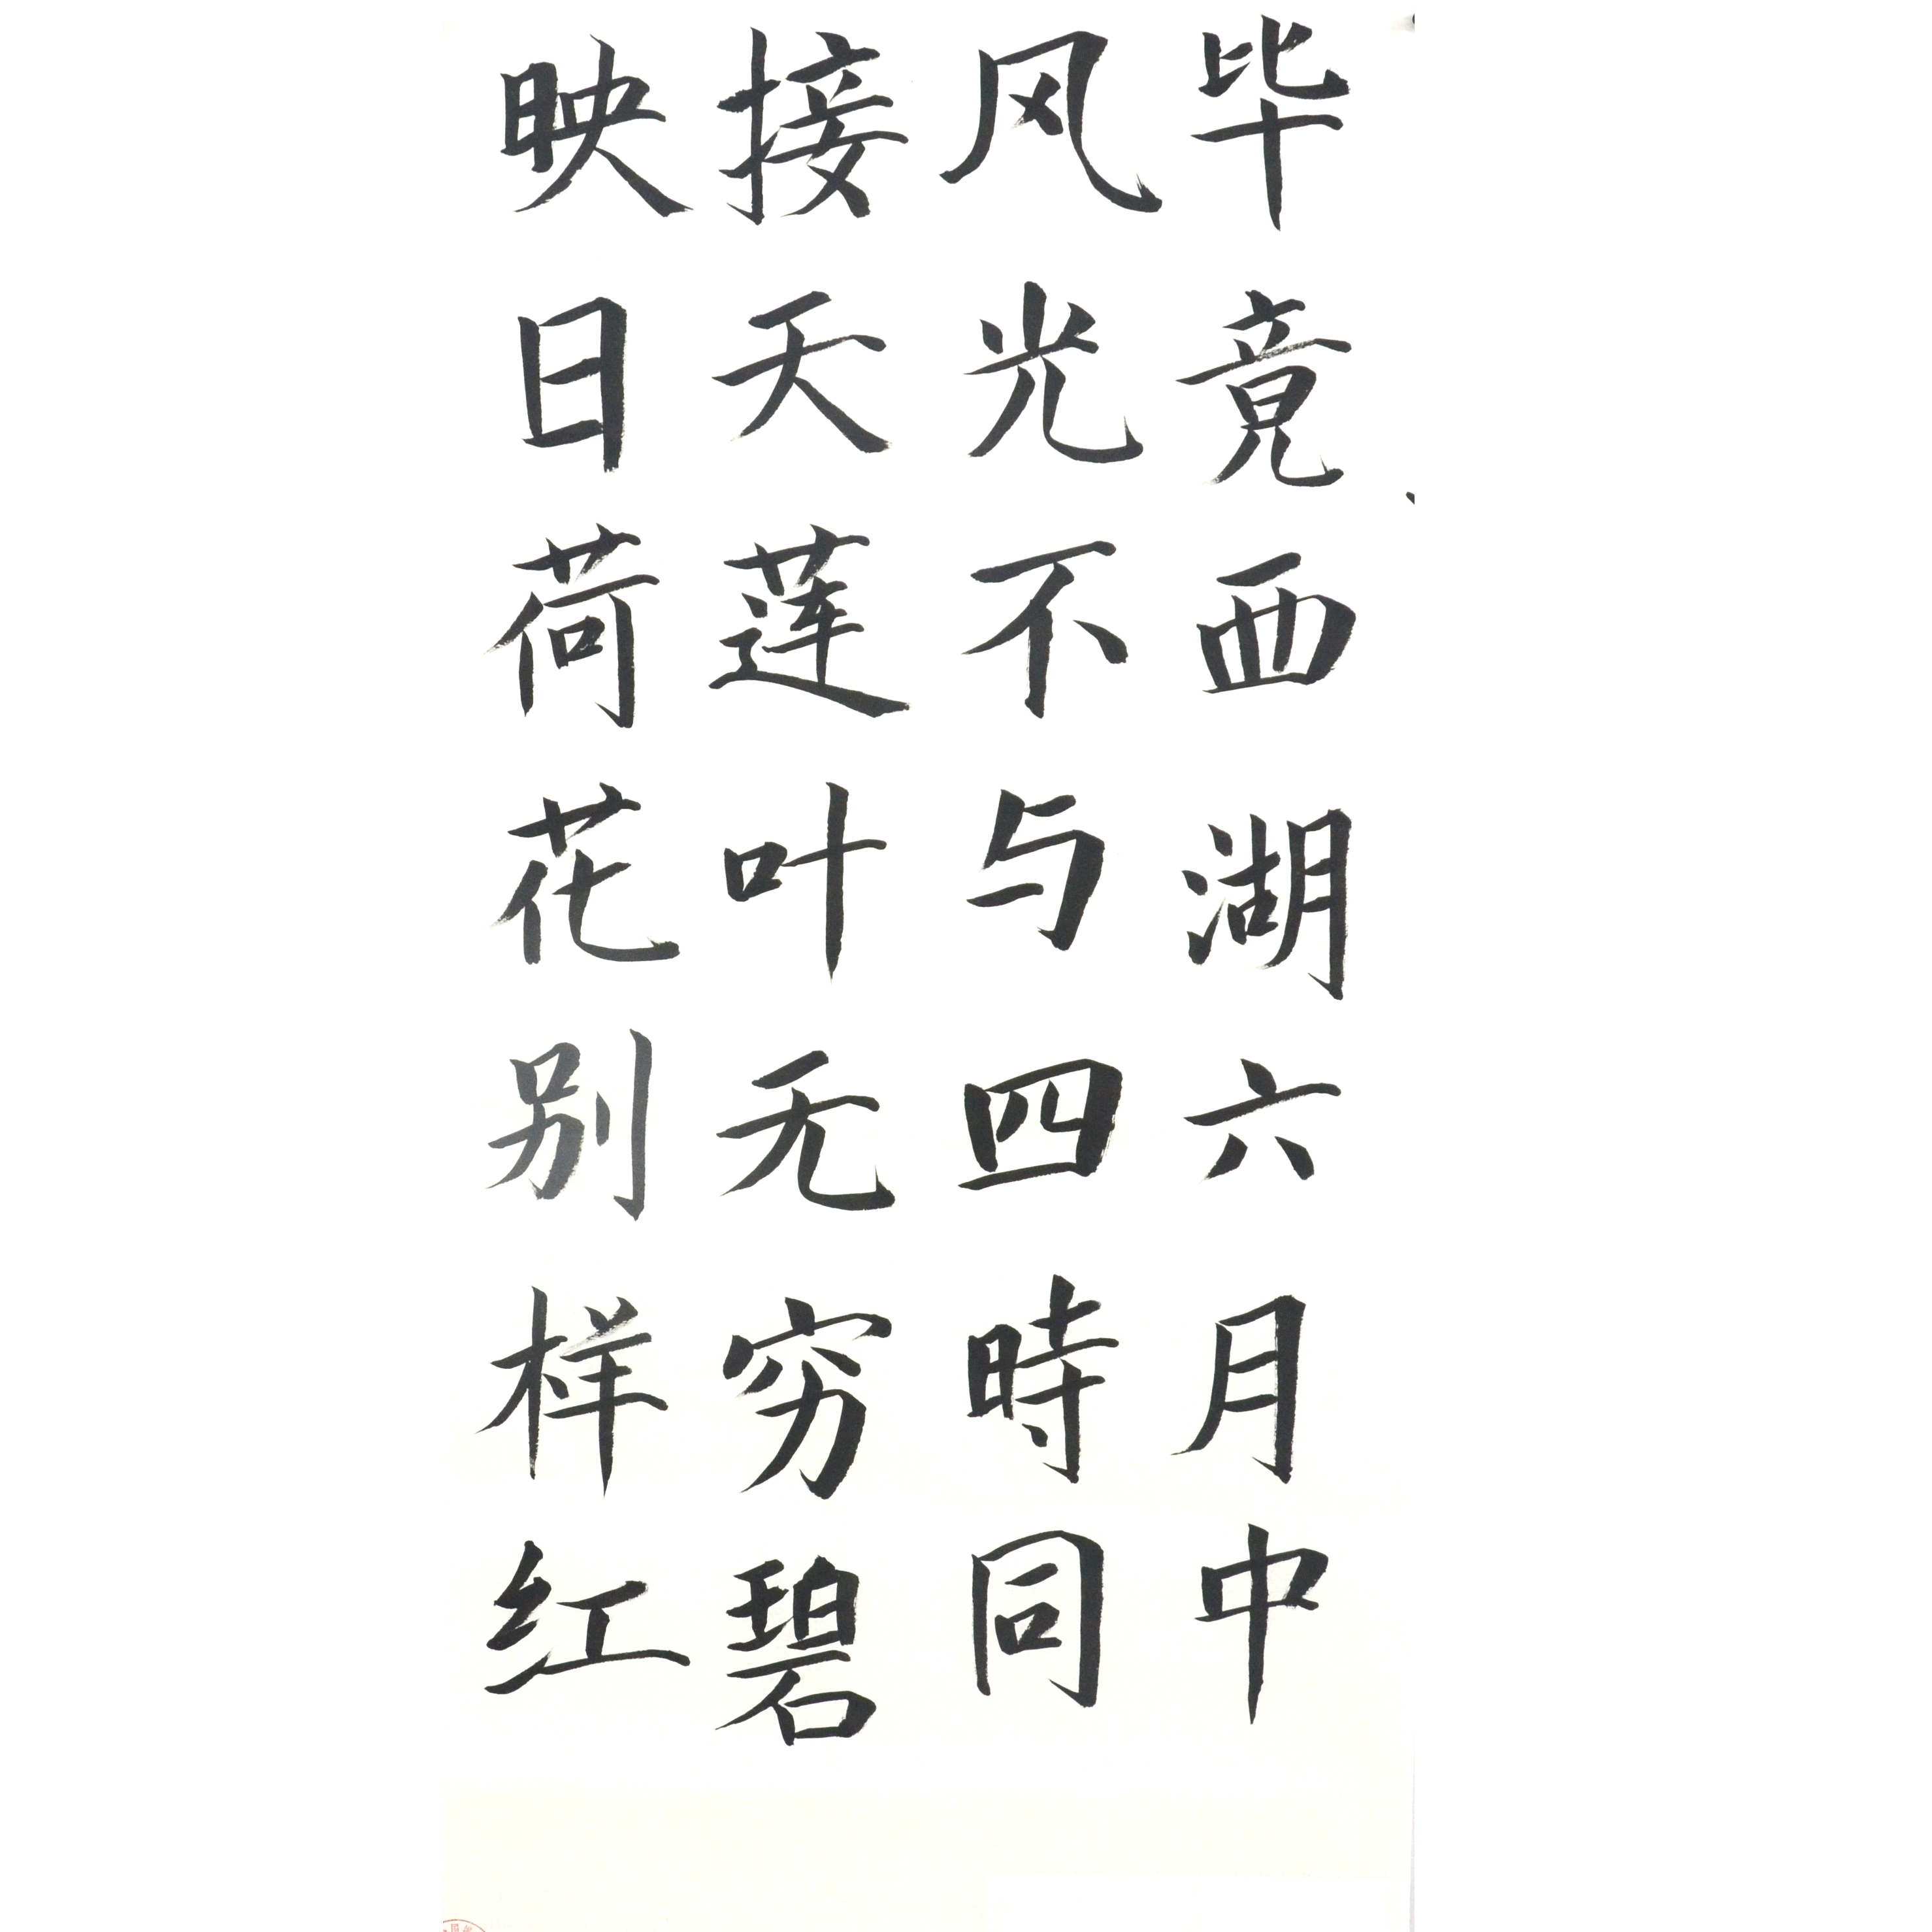 毕竟西湖六月中
风光不与四時同
接天莲叶无穷碧
映日荷花别样红